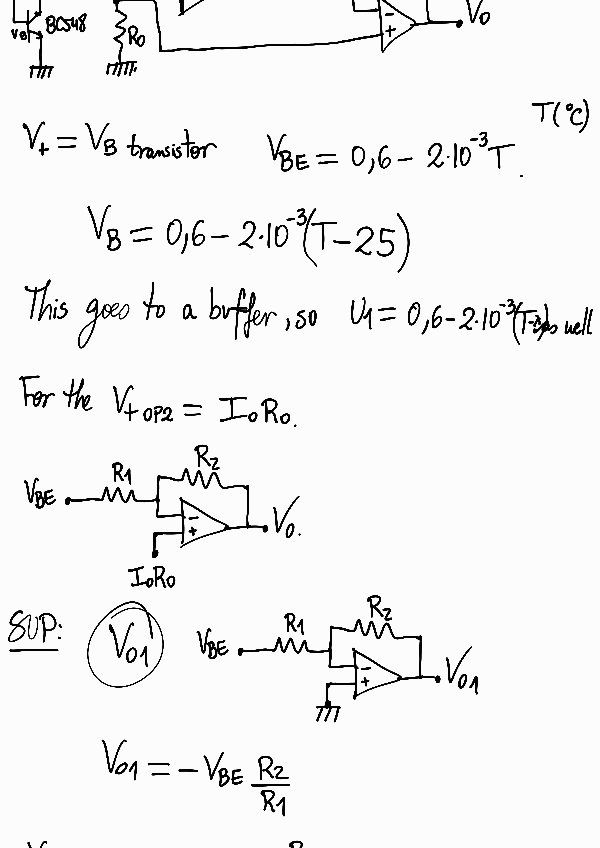 VB BC548
R0
Vo
T(°C)
V+ = VB transistor VBE = 0,6 - 2·10⁻³T.
VB = 0,6 - 2·10⁻³(T-25)
This goes to a buffer, so U1 = 0,6-2·10⁻³ as well
For the V+OP2 = IoRo.
R2
R1
VBE
Vo.
IoRo
SUP: Vo1
R2
R1
VBE
Vo1
Vo1 = -VBE R2/R1